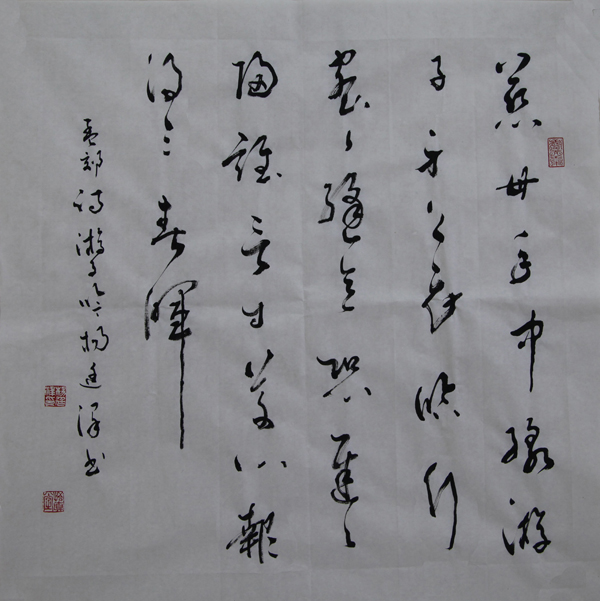 慈母手中線游
子身上衣臨行
密〻縫意恐遲〻
歸誰言寸草心報
得三春暉
孟郊詩游子吟楊廷書